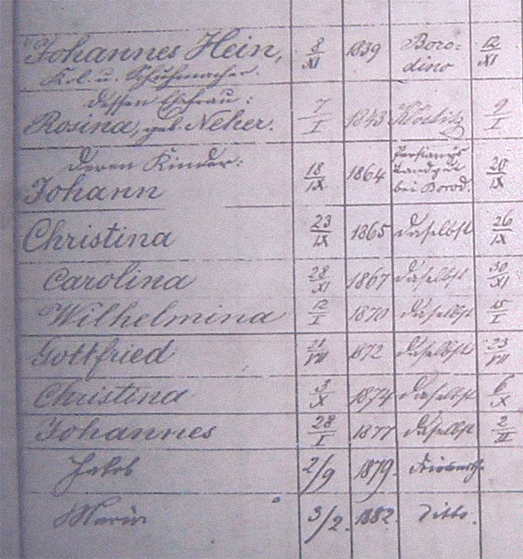 Johannes Hein, 8/XI 1839 Boro- 12/XI
Kol. u. Schuhmacher. dino
dessen Ehefrau:
Rosina, geb. Neher. 7/I 1843 9/I
deren Kinder:
Johann 18/IX 1864 bei Borod. 20/IX
Christina 23/IX 1865 daselbst 26/IX
Carolina 28/XI 1867 daselbst 30/XI
Wilhelmina 12/I 1870 daselbst 15/I
Gottfried 21/VII 1872 daselbst 23/VII
Christina 3/X 1874 daselbst 6/X
Johannes 28/I 1877 daselbst 2/II
Jakob 2/9 1879.
Maria 3/2. 1882. ditto.